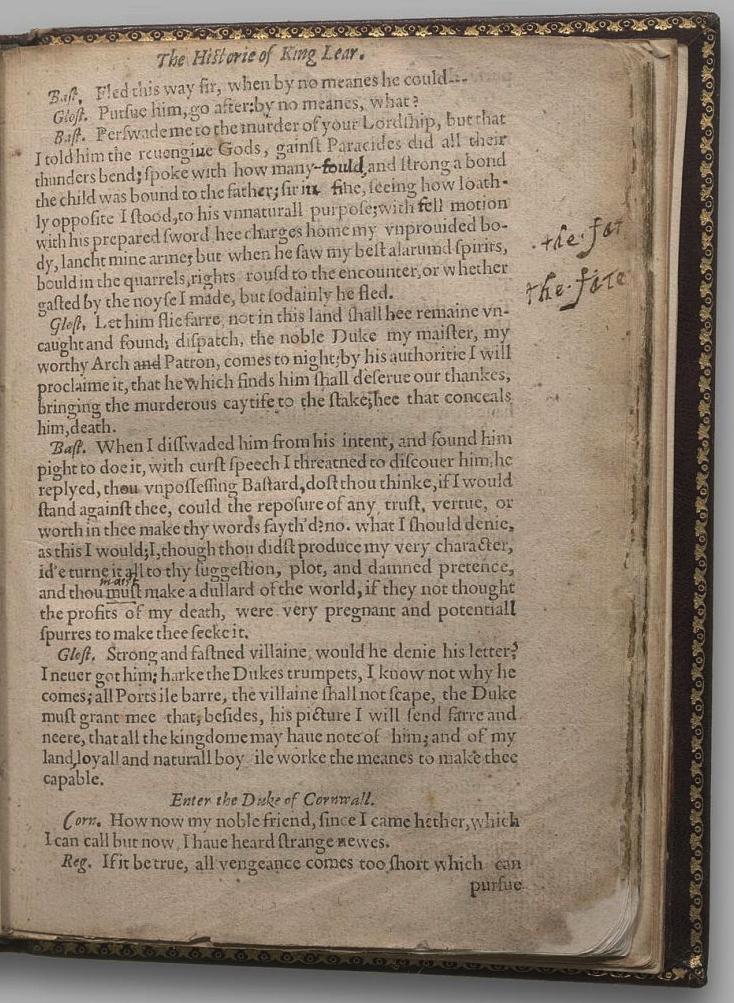 The Historie of King Lear.
Baſt. Fled this way ſir, when by no meanes he could--
Gloſt. Purſue him, go after: by no meanes, what?
Baſt. Perſwade me to the murder of your Lordſhip, but that
I told him the reuengiue Gods, gainſt Paracides did all their
thunders bend; ſpoke with how many fould and ſtrong a bond
the child was bound to the father; ſir in fine, ſeeing how loath-
ly oppoſite I ſtood, to his vnnaturall purpoſe; with fell motion
with his prepared ſword hee charges home my vnprouided bo-
dy, lancht mine arme; but when he ſaw my beſt alarumd ſpirits,
bould in the quarrels, rights rouſd to the encounter, or whether
gaſted by the noyſe I made, but ſodainly he fled.
Gloſt. Let him flie farre, not in this land ſhall hee remaine vn-
caught and found; diſpatch, the noble Duke my maiſter, my
worthy Arch and Patron, comes to night; by his authoritie I will
proclaime it, that he which finds him ſhall deſerue our thankes,
bringing the murderous caytife to the ſtake; hee that conceals
him, death.
Baſt. When I diſſwaded him from his intent, and found him
pight to doe it, with curſt ſpeech I threatned to diſcouer him; he
replyed, thou vnpoſſeſſing Baſtard, doſt thou thinke, if I would
ſtand againſt thee, could the repoſure of any truſt, vertue, or
worth in thee make thy words fayth'd? no. what I ſhould denie,
as this I would; I, though thou didſt produce my very character,
id'e turne it all to thy ſuggeſtion, plot, and damned pretence,
and thou muſt make a dullard of the world, if they not thought
the profits of my death, were very pregnant and potentiall
ſpurres to make thee ſeeke it.
Gloſt. Strong and faſtned villaine, would he denie his letter?
I neuer got him; harke the Dukes trumpets, I know not why he
comes; all Ports ile barre, the villaine ſhall not ſcape, the Duke
muſt grant mee that; beſides, his picture I will ſend farre and
neere, that all the kingdome may haue note of him; and of my
land, loyall and naturall boy ile worke the meanes to make thee
capable.
Enter the Duke of Cornwall.
Corn. How now my noble friend, ſince I came hether, which
I can call but now, I haue heard ſtrange newes.
Reg. If it be true, all vengeance comes too ſhort which can
purſue
the fat
the fate